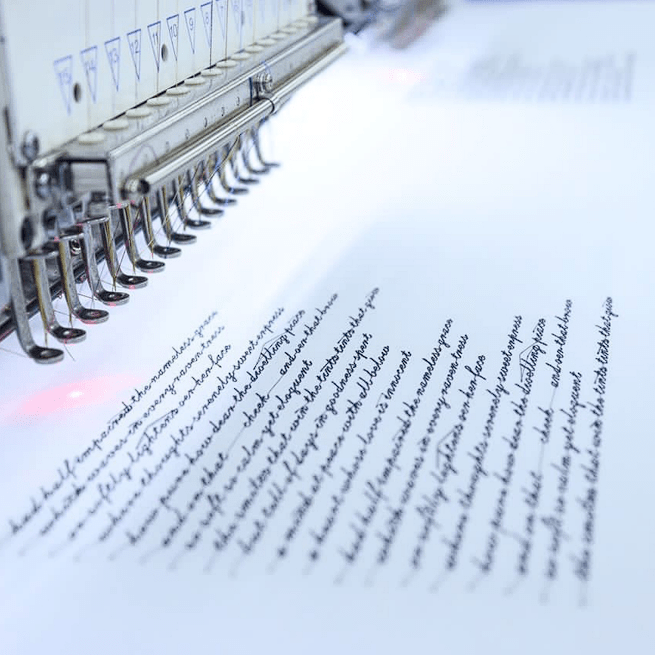 15 14 13 12 11 10 9 8
had half impaired the nameless grace
which waves in every raven tress
or softly lightens oer her face
where thoughts serenely sweet express
how pure how dear the dwelling place
and on that cheek and oer that brow
so soft so calm yet eloquent
the smiles that win the tints tints that glow
but tell of days in goodness spent
a mind at peace with all below
a heart whose love is innocent
had half impaired the nameless grace
which waves in every raven tress
or softly lightens oer her face
where thoughts serenely sweet express
how pure how dear the dwelling place
and on that cheek and oer that brow
so soft so calm yet eloquent
the smiles that win the tints tints that glow